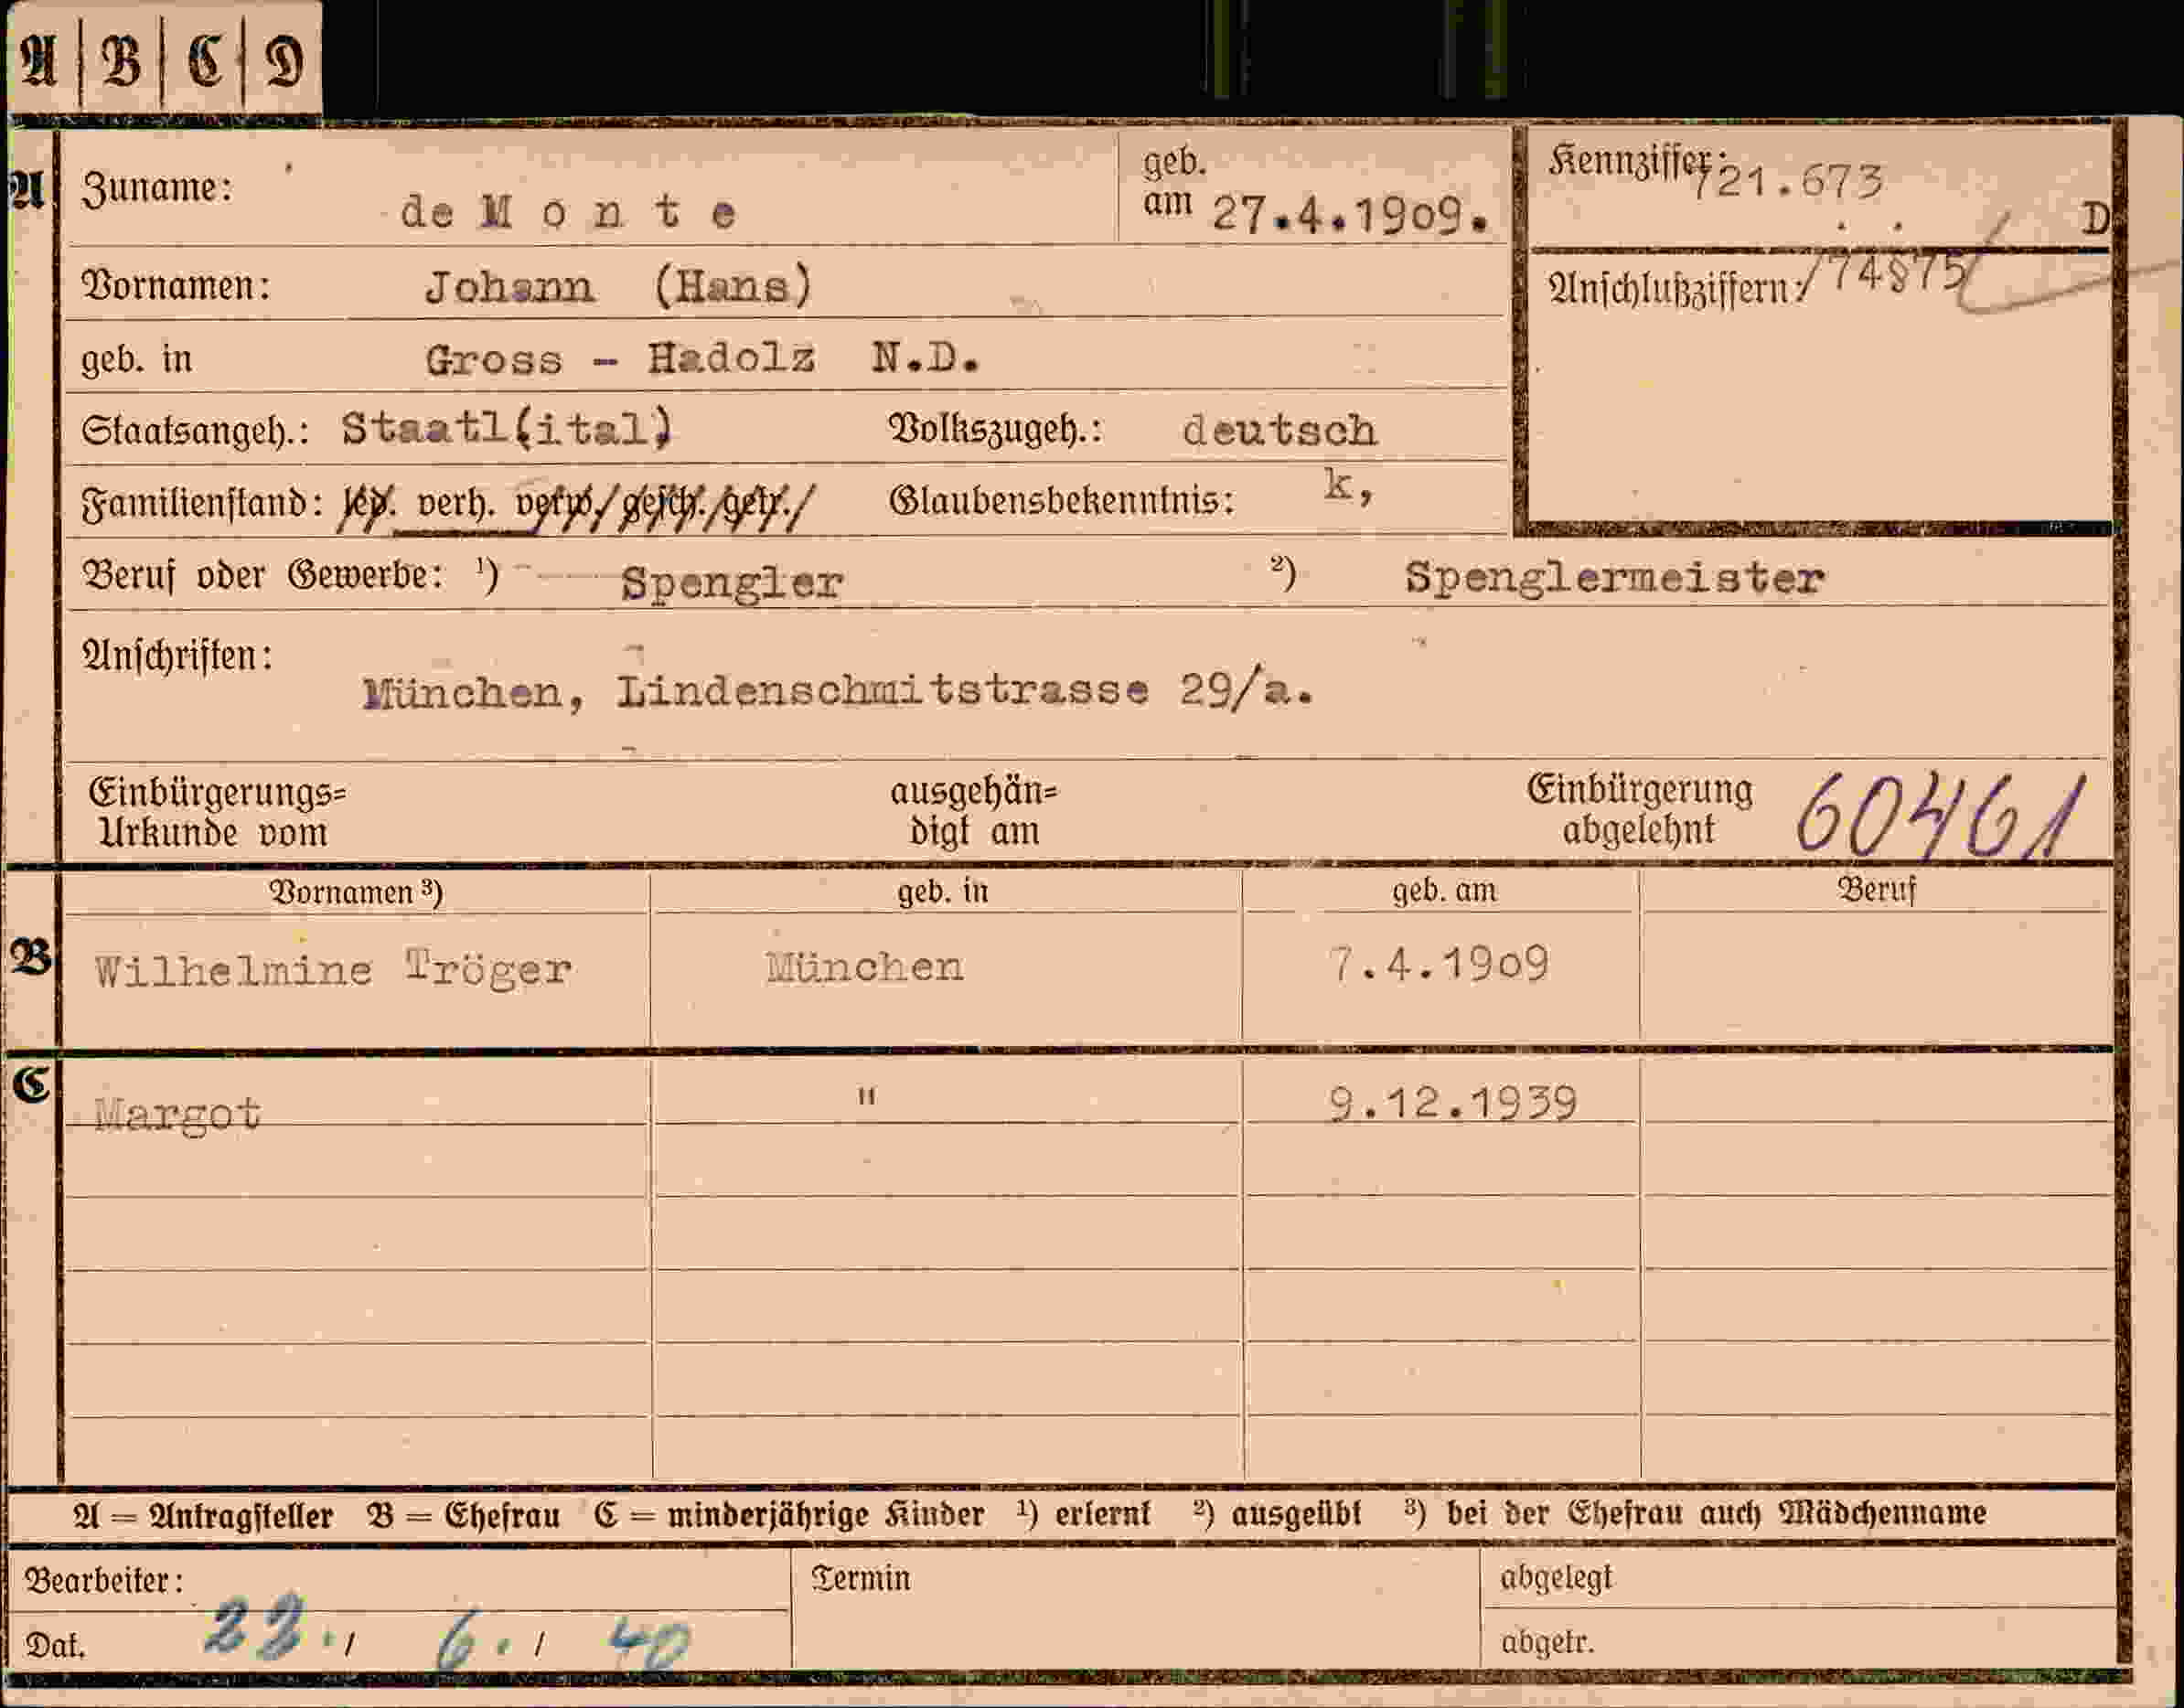 A | B | C | D
A Zuname: de M o n t e geb. am 27.4.1909. Kennziffer: 721.673 D
Vornamen: Johann (Hans) Anschlußziffern: /74875/
geb. in Gross - Hadolz N.D.
Staatsangeh.: Staatl(ital) Volkszugeh.: deutsch
Familienstand: led. verh. verw. gesch. getr. Glaubensbekenntnis: k,
Beruf oder Gewerbe: ¹) Spengler ²) Spenglermeister
Anschriften:
München, Lindenschmitstrasse 29/a.
Einbürgerungs= ausgehän= Einbürgerung 60461
Urkunde vom digt am abgelehnt
Vornamen ³) geb. in geb. am Beruf
B Wilhelmine Tröger München 7.4.1909
C Margot " 9.12.1939
A = Antragsteller B = Ehefrau C = minderjährige Kinder ¹) erlernt ²) ausgeübt ³) bei der Ehefrau auch Mädchenname
Bearbeiter: Termin abgelegt
Dat. 22./ 6./ 40 abgetr.